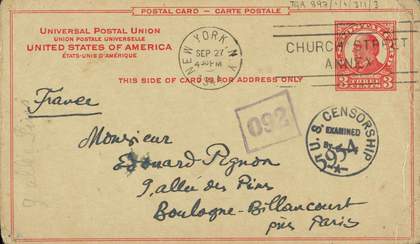 TGA 897/1/1/311/3
POSTAL CARD – CARTE POSTALE
UNIVERSAL POSTAL UNION
UNION POSTALE UNIVERSELLE
UNITED STATES OF AMERICA
ÉTATS-UNIS D'AMÉRIQUE
THIS SIDE OF CARD IS FOR ADDRESS ONLY
NEW YORK, N.Y.
SEP 27
4 PM
CHURCH STREET
ANNEX
3 THREE 3
CENTS
France
092
U.S. CENSORSHIP
EXAMINED
BY
954
Monsieur
Edouard Pignon
9 allée des Pins
Boulogne-Billancourt
près Paris